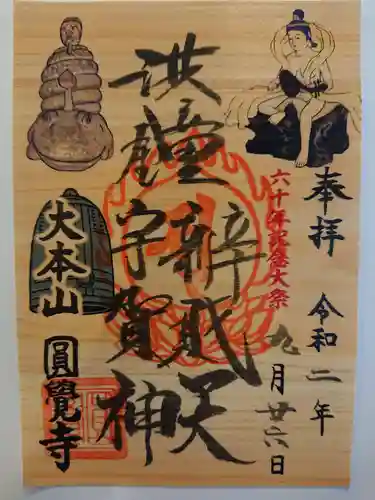 奉拝 令和二年
九月廿六日
六十年記念大祭
辩戝天
洪鐘宇賀神
大本山
圓覺寺